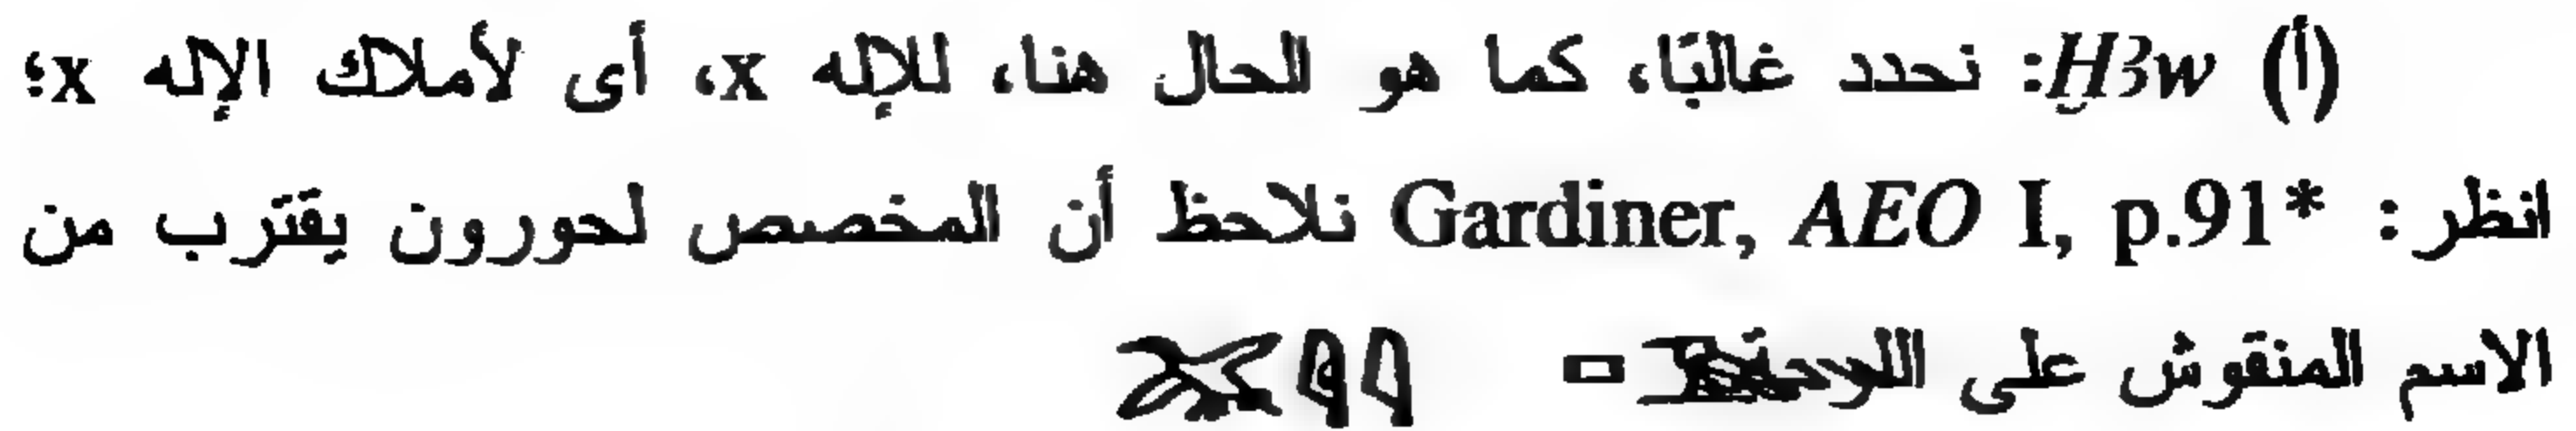 (أ) H̱3w: تحدد غالبًا، كما هو الحال هنا، للإله x، أى لأملاك الإله x؛
انظر: Gardiner, AEO I, p.91* نلاحظ أن المخصص لحورون يقترب من
الاسم المنقوش على اللوحة